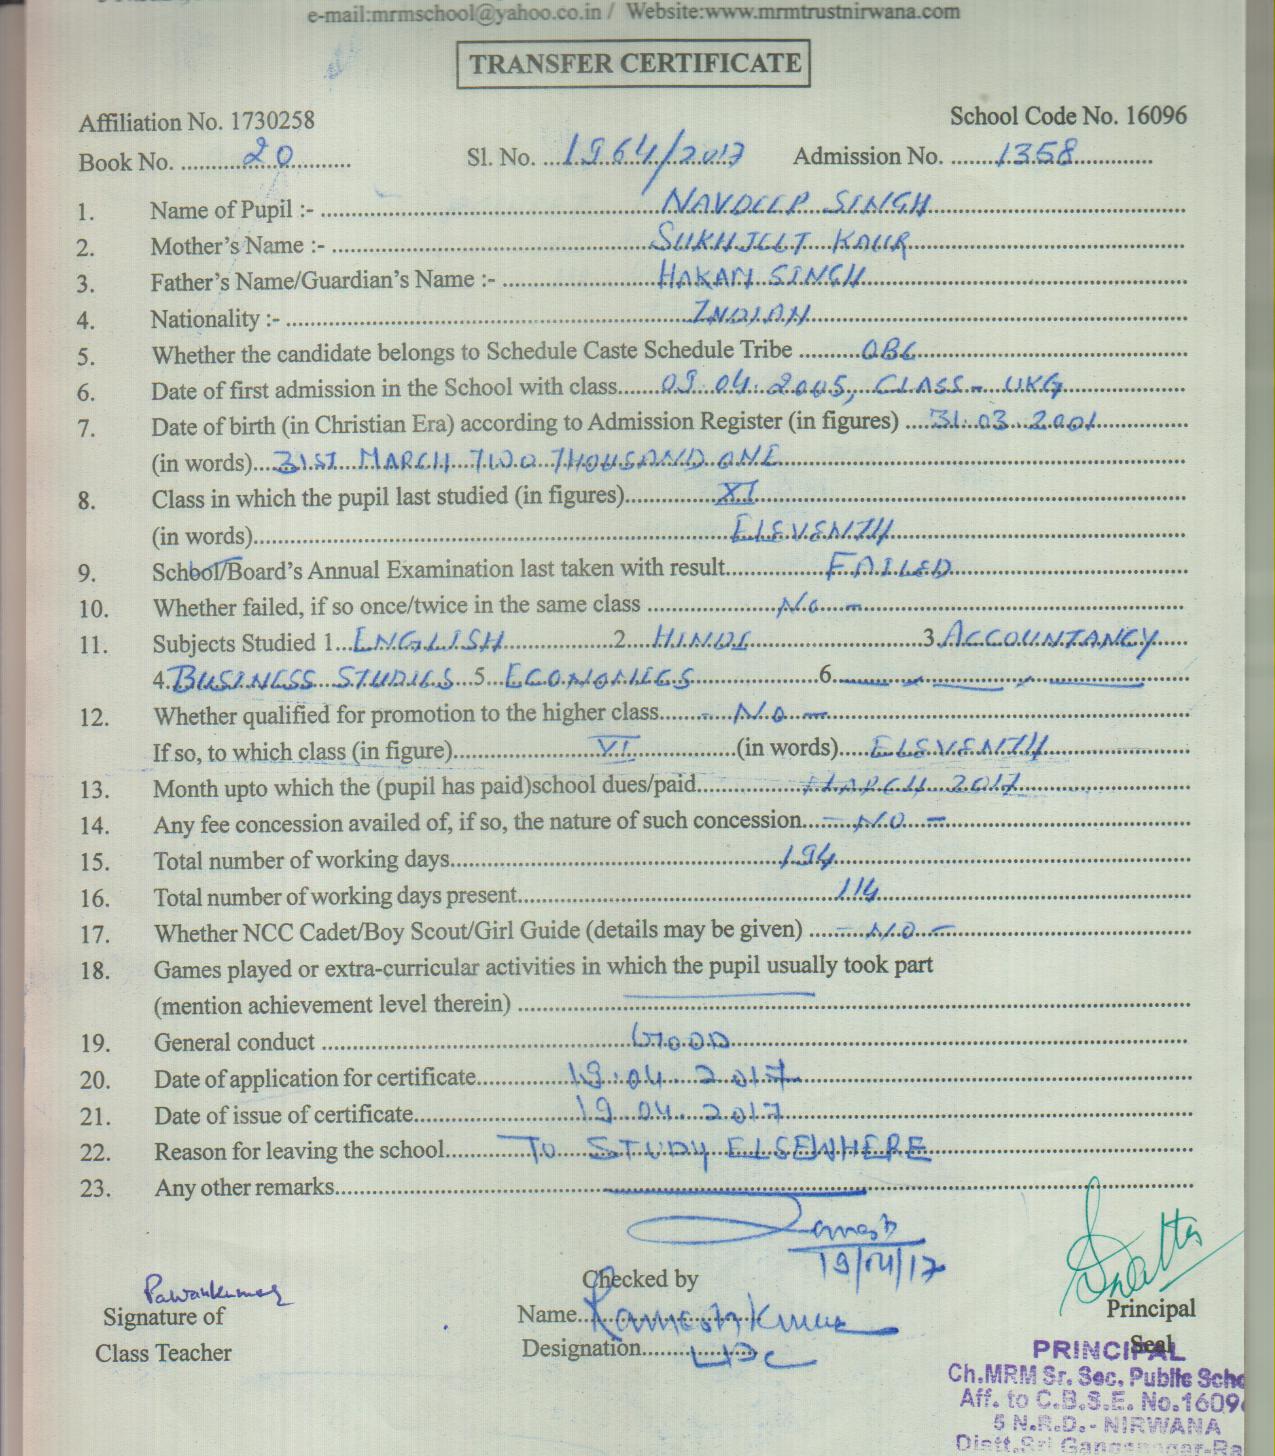 e-mail:mrmschool@yahoo.co.in / Website:www.mrmtrustnirwana.com
TRANSFER CERTIFICATE
Affiliation No. 1730258 School Code No. 16096
Book No. 20 Sl. No. 1964/2017 Admission No. 1358
1. Name of Pupil :- NAVDEEP SINGH
2. Mother's Name :- SUKHJEET KAUR
3. Father's Name/Guardian's Name :- HAKAM SINGH
4. Nationality :- INDIAN
5. Whether the candidate belongs to Schedule Caste Schedule Tribe OBC
6. Date of first admission in the School with class 09.04.2005, CLASS - UKG
7. Date of birth (in Christian Era) according to Admission Register (in figures) 31.03.2001
(in words) 31ST MARCH TWO THOUSAND ONE
8. Class in which the pupil last studied (in figures) XI
(in words) ELEVENTH
9. School/Board's Annual Examination last taken with result FAILED
10. Whether failed, if so once/twice in the same class No -
11. Subjects Studied 1 ENGLISH 2 HINDI 3 ACCOUNTANCY
4 BUSINESS STUDIES 5 ECONOMICS 6
12. Whether qualified for promotion to the higher class - No -
If so, to which class (in figure) XI (in words) ELEVENTH
13. Month upto which the (pupil has paid)school dues/paid MARCH 2017
14. Any fee concession availed of, if so, the nature of such concession - NO -
15. Total number of working days 194
16. Total number of working days present 114
17. Whether NCC Cadet/Boy Scout/Girl Guide (details may be given) - NO -
18. Games played or extra-curricular activities in which the pupil usually took part
(mention achievement level therein)
19. General conduct GOOD
20. Date of application for certificate 19.04.2017
21. Date of issue of certificate 19.04.2017
22. Reason for leaving the school TO STUDY ELSEWHERE
23. Any other remarks
19/04/17
Pawankumar Checked by
Signature of Name Ramesh Kumar Principal
Class Teacher Designation LDC Seal
PRINCIPAL
Ch.MRM Sr. Sec. Public Scho
Aff. to C.B.S.E. No.1609
5 N.R.D.- NIRWANA
Distt.Sri Ganganagar-Ra